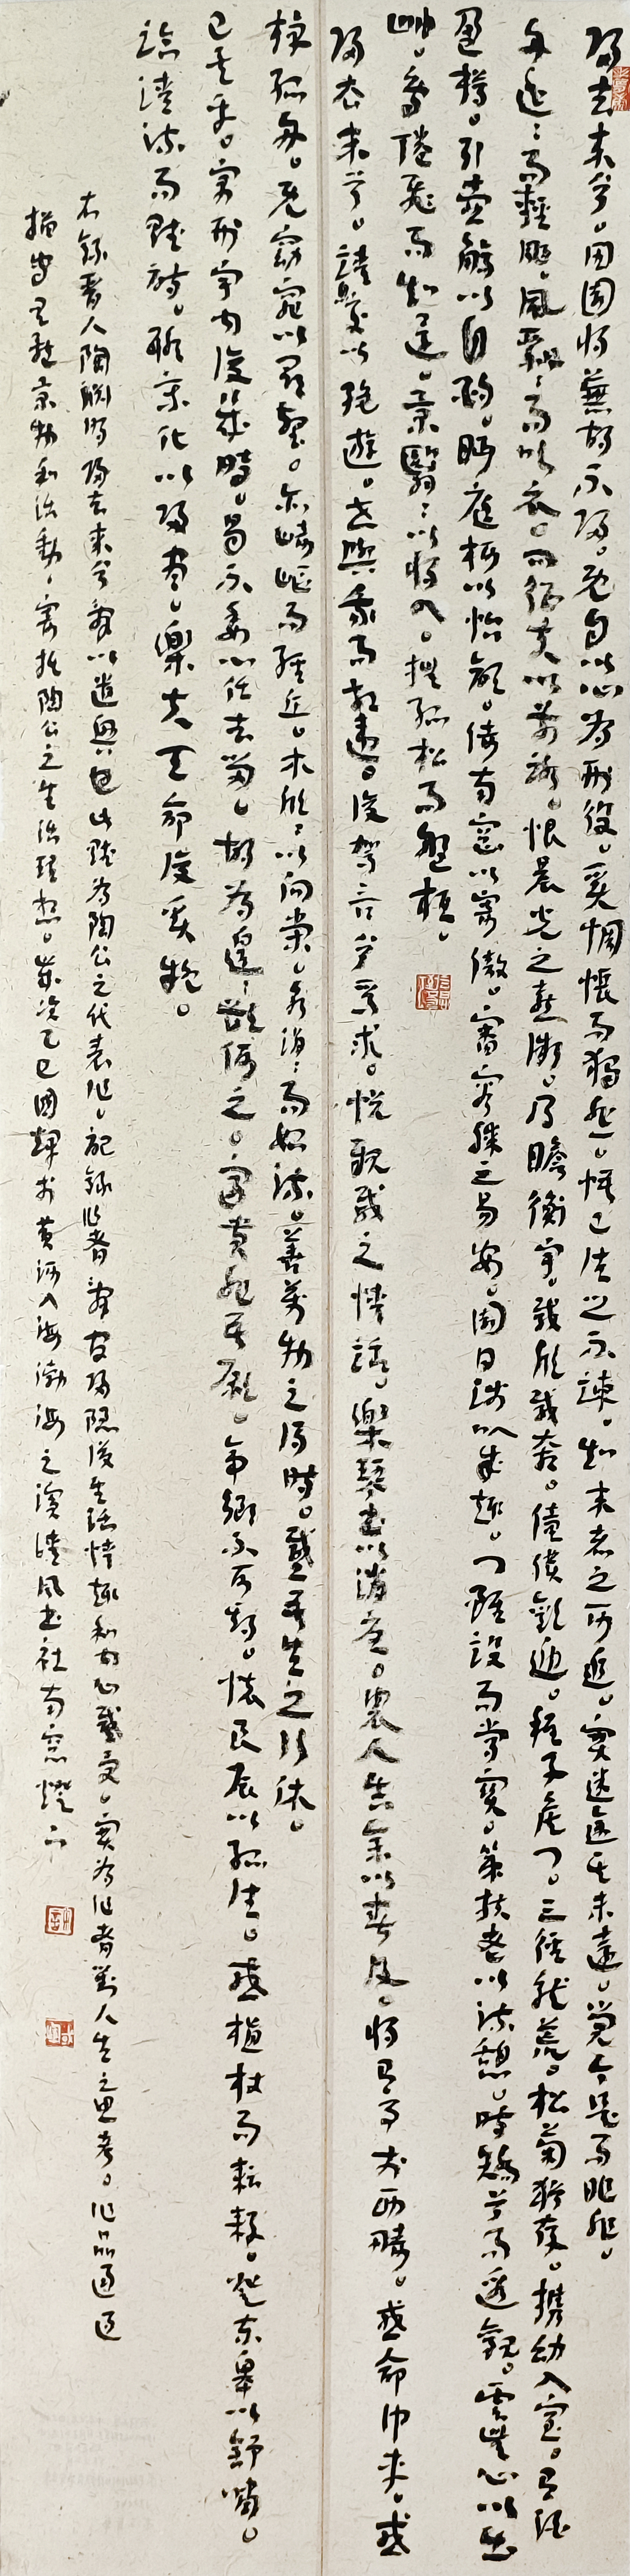 歸去来兮。田園將蕪胡不歸。既自以心為形役。奚惆悵而獨悲。悟已往之不諫。知来者之可追。實迷途其未遠。覺今是而昨非。
舟遥〻而輕颺。風飄〻而吹衣。問征夫以前路。恨晨光之熹微。乃瞻衡宇。載欣載奔。僮僕歡迎。稚子候門。三徑就荒。松菊猶存。攜幼入室。有酒
盈樽。引壺觴以自酌。眄庭柯以怡顔。倚南窗以寄傲。審容膝之易安。園日涉以成趣。門雖設而常關。策扶老以流憩。時矯首而遐觀。雲無心以出
岫。鳥倦飛而知還。景翳〻以將入。撫孤松而盤桓。
歸去来兮。請息交以絶遊。世與我而相違。復駕言兮焉求。悦親戚之情話。樂琴書以消憂。農人告余以春及。將有事於西疇。或命巾車。或
棹孤舟。既窈窕以尋壑。亦崎嶇而經丘。木欣〻以向榮。泉涓〻而始流。善萬物之得時。感吾生之行休。
已矣乎。寓形宇内復幾時。曷不委心任去留。胡為遑〻欲何之。富貴非吾願。帝鄉不可期。懷良辰以孤往。或植杖而耘耔。登東皋以舒嘯。
臨清流而賦詩。聊乘化以歸盡。樂夫天命復奚疑。
右録晋人陶淵明歸去来兮辭以遣興也此賦為陶公之代表作。記録作者辭官歸隱後生活情趣和内心感受。實為作者對人生之思考。作品通过
描寫具體景物和活動，寄託陶公之生活理想。歲次乙巳國輝於黄河入海渤海之濱風書社南窗燈下